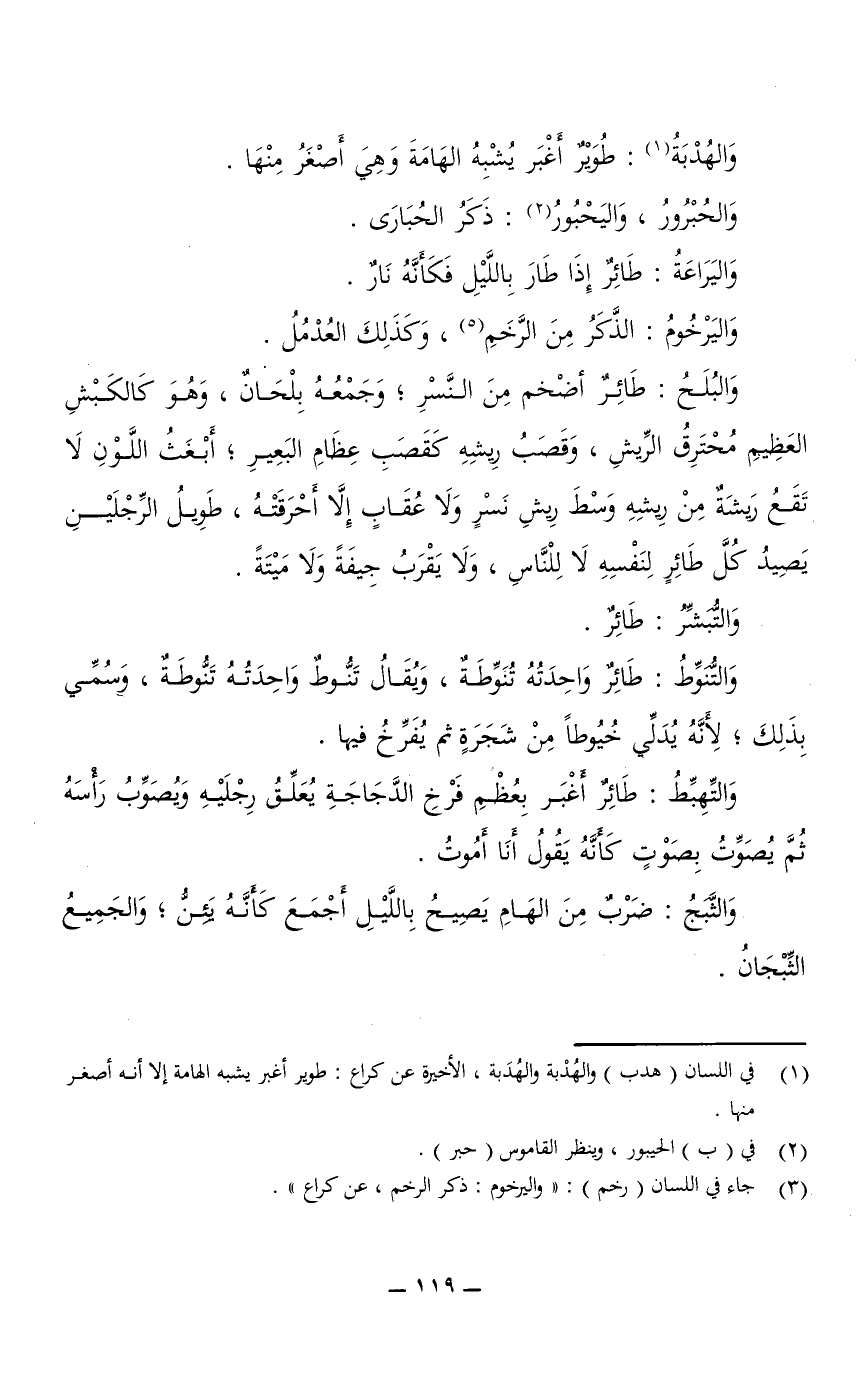 وَالهُدْبَةُ(١) : طُوَيْرٌ أَغْبَر يُشْبِهُ الهَامَةَ وَهِيَ أَصْغَرُ مِنْهَا .
وَالحُبْرُورُ ، وَاليَحْبُورُ(٢) : ذَكَرُ الحُبَارَى .
وَاليَرَاعَةُ : طَائِرٌ إِذَا طَارَ بِاللَّيْلِ فَكَأَنَّهُ نَارٌ .
وَاليَرْخُومُ : الذَّكَرُ مِنَ الرَّخَمِ(٥) ، وَكَذَلِكَ العُدْمُلُ .
وَالبُلَحُ : طَائِرٌ أضْخم مِنَ النَّسْرِ ؛ وَجَمْعُهُ بِلْحَانٌ ، وَهُوَ كَالكَبْشِ
العَظِيمِ مُحْتَرِقُ الرِّيشِ ، وَقَصَبُ رِيشِهِ كَقَصَبِ عِظَامِ البَعِيرِ ؛ أَبْغَثُ اللَّوْنِ لَا
تَقَعُ رَيشَةٌ مِنْ رِيشِهِ وَسْطَ رِيشِ نَسْرٍ وَلَا عُقَابٍ إِلَّا أَحْرَقَتْهُ ، طَوِيلُ الرِّجْلَيْنِ
يَصِيدُ كُلَّ طَائِرٍ لِنَفْسِهِ لَا لِلْنَّاسِ ، وَلَا يَقْرَبُ جِيفَةً وَلَا مَيْتَةً .
وَالتُّبَشِّرُ : طَائِرٌ .
وَالتُّنَوِّطُ : طَائِرٌ وَاحِدَتُهُ تُنَوِّطَةٌ ، وَيُقَالُ تَنُّوطٌ وَاحِدَتُهُ تَنُّوطَةٌ ، وَسُمِّي
بِذَلِكَ ؛ لِأَنَّهُ يُدَلِّي خُيُوطاً مِنْ شَجَرَةٍ ثم يُفَرِّخُ فيها .
وَالتِّهِبِّطُ : طَائِرٌ أَغْبَر بِعُظْمِ فَرْخِ الدَّجَاجَةِ يُعَلِّقُ رِجْلَيْهِ وَيُصَوِّبُ رَأْسَهُ
ثُمَّ يُصَوِّتُ بِصَوْتٍ كَأَنَّهُ يَقُولُ أَنَا أَمُوتُ .
وَالثَّبَجُ : ضَرْبٌ مِنَ الهَامِ يَصِيحُ بِاللَّيْلِ أَجْمَعَ كَأَنَّهُ يَئِنُّ ؛ وَالجَمِيعُ
الثِّبْجَانُ .
(١) في اللسان ( هدب ) والهُدْبة والهُدَبة ، الأخيرة عن كراع : طوير أغبر يشبه الهامة إلا أنه أصغر
منها .
(٢) في ( ب ) الحيبور ، وينظر القاموس ( حبر ) .
(٣) جاء في اللسان ( رخم ) : « واليرخوم : ذكر الرخم ، عن كراع » .
— ١١٩ —